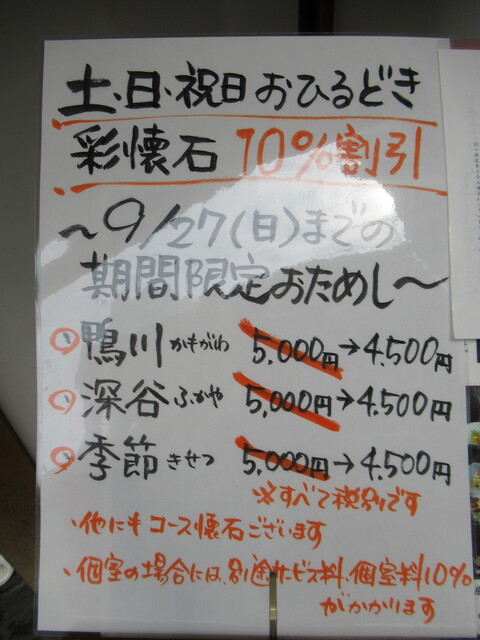 土・日・祝日おひるどき
彩懐石 10%割引
〜9/27(日)までの
期間限定おためし〜
鴨川 かもがわ 5,000円→4,500円
深谷 ふかや 5,000円→4,500円
季節 きせつ 5,000円→4,500円
※すべて税別です
、他にもコース懐石ございます
、個室の場合には、別途サービス料、個室料10%
がかかります